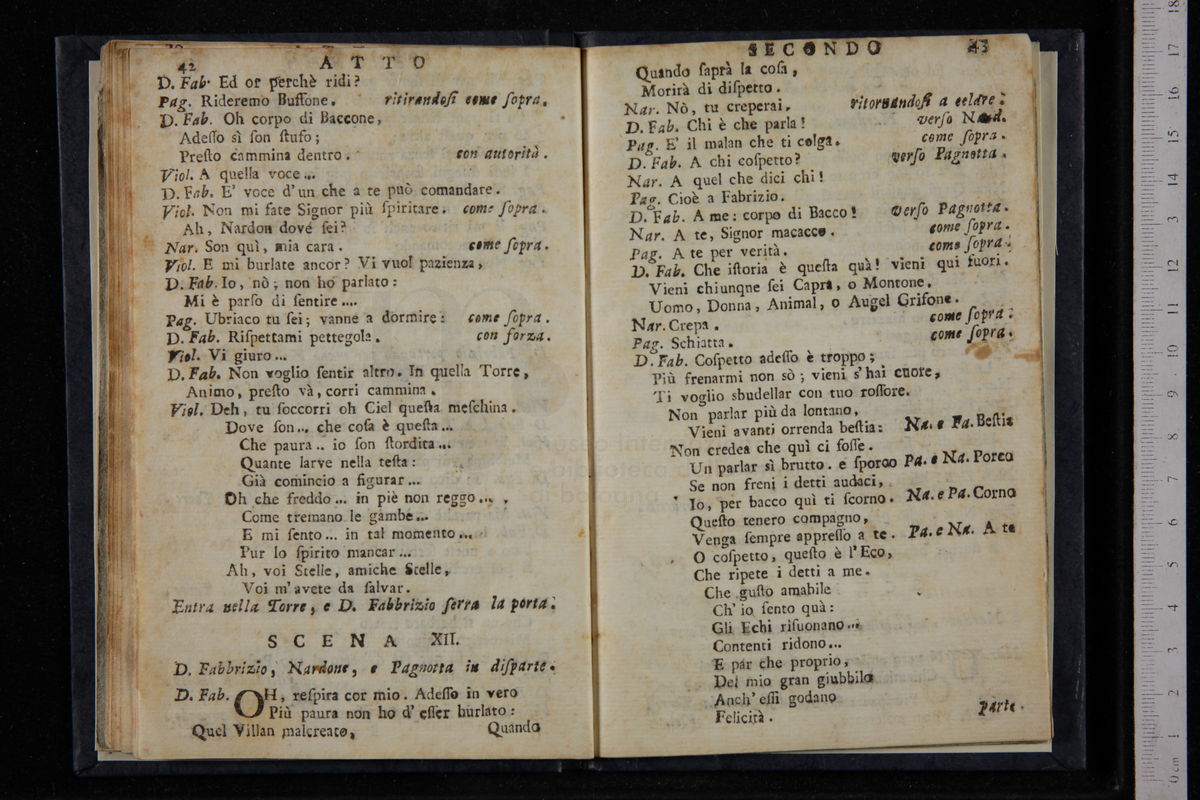 42 ATTO
D. Fab. Ed or perchè ridi?
Pag. Rideremo Buffone. ritirandosi come sopra.
D. Fab. Oh corpo di Baccone,
Adeſſo sì ſon ſtufo;
Preſto cammina dentro. con autorità.
Viol. A quella voce...
D. Fab. E' voce d'un che a te può comandare.
Viol. Non mi fate Signor più ſpiritare. come ſopra.
Ah, Nardon dove ſei?
Nar. Son quì, mia cara. come ſopra.
Viol. E mi burlate ancor? Vi vuol pazienza,
D. Fab. Io, nò; non ho parlato:
Mi è parſo di ſentire....
Pag. Ubriaco tu ſei; vanne a dormire: come ſopra.
D. Fab. Riſpettami pettegola. con forza.
Viol. Vi giuro...
D. Fab. Non voglio ſentir altro. In quella Torre,
Animo, preſto và, corri cammina.
Viol. Deh, tu ſoccorri oh Ciel queſta meſchina.
Dove ſon... che coſa è queſta...
Che paura.. io ſon ſtordita...
Quante larve nella teſta:
Già comincio a figurar...
Oh che freddo... in piè non reggo...
Come tremano le gambe...
E mi ſento... in tal momento...
Pur lo ſpirito mancar...
Ah, voi Stelle, amiche Stelle,
Voi m'avete da ſalvar.
Entra nella Torre, e D. Fabbrizio ſerra la porta.
SCENA XII.
D. Fabbrizio, Nardone, e Pagnotta in diſparte.
D. Fab. OH, reſpira cor mio. Adeſſo in vero
Più paura non ho d'eſſer burlato:
Quel Villan malcreato, Quando
SECONDO 43
Quando ſaprà la coſa,
Morirà di diſpetto.
Nar. Nò, tu creperai. ritornandoſi a celare.
D. Fab. Chi è che parla! verſo Nard.
Pag. E' il malan che ti colga. come ſopra.
D. Fab. A chi coſpetto? verſo Pagnotta.
Nar. A quel che dici chi!
Pag. Cioè a Fabrizio.
D. Fab. A me: corpo di Bacco! verſo Pagnotta.
Nar. A te, Signor macacco. come ſopra.
Pag. A te per verità. come ſopra.
D. Fab. Che iſtoria è queſta quà! vieni qui fuori.
Vieni chiunque ſei Capra, o Montone.
Uomo, Donna, Animal, o Augel Grifone.
Nar. Crepa. come ſopra.
Pag. Schiatta. come ſopra.
D. Fab. Coſpetto adeſſo è troppo;
Più frenarmi non sò; vieni s'hai cuore,
Ti voglio sbudellar con tuo roſſore.
Non parlar più da lontano,
Vieni avanti orrenda beſtia: Na. e Pa. Beſtia
Non credea che quì ci foſſe.
Un parlar sì brutto. e ſporco Pa. e Na. Porco
Se non freni i detti audaci,
Io, per bacco quì ti ſcorno. Na. e Pa. Corno
Queſto tenero compagno,
Venga ſempre appreſſo a te. Pa. e Na. A te
O coſpetto, queſto è l'Eco,
Che ripete i detti a me.
Che guſto amabile
Ch'io ſento quà:
Gli Echi riſuonano...
Contenti ridono...
E par che proprio,
Del mio gran giubbilo
Anch'eſſi godano
Felicità. parte.